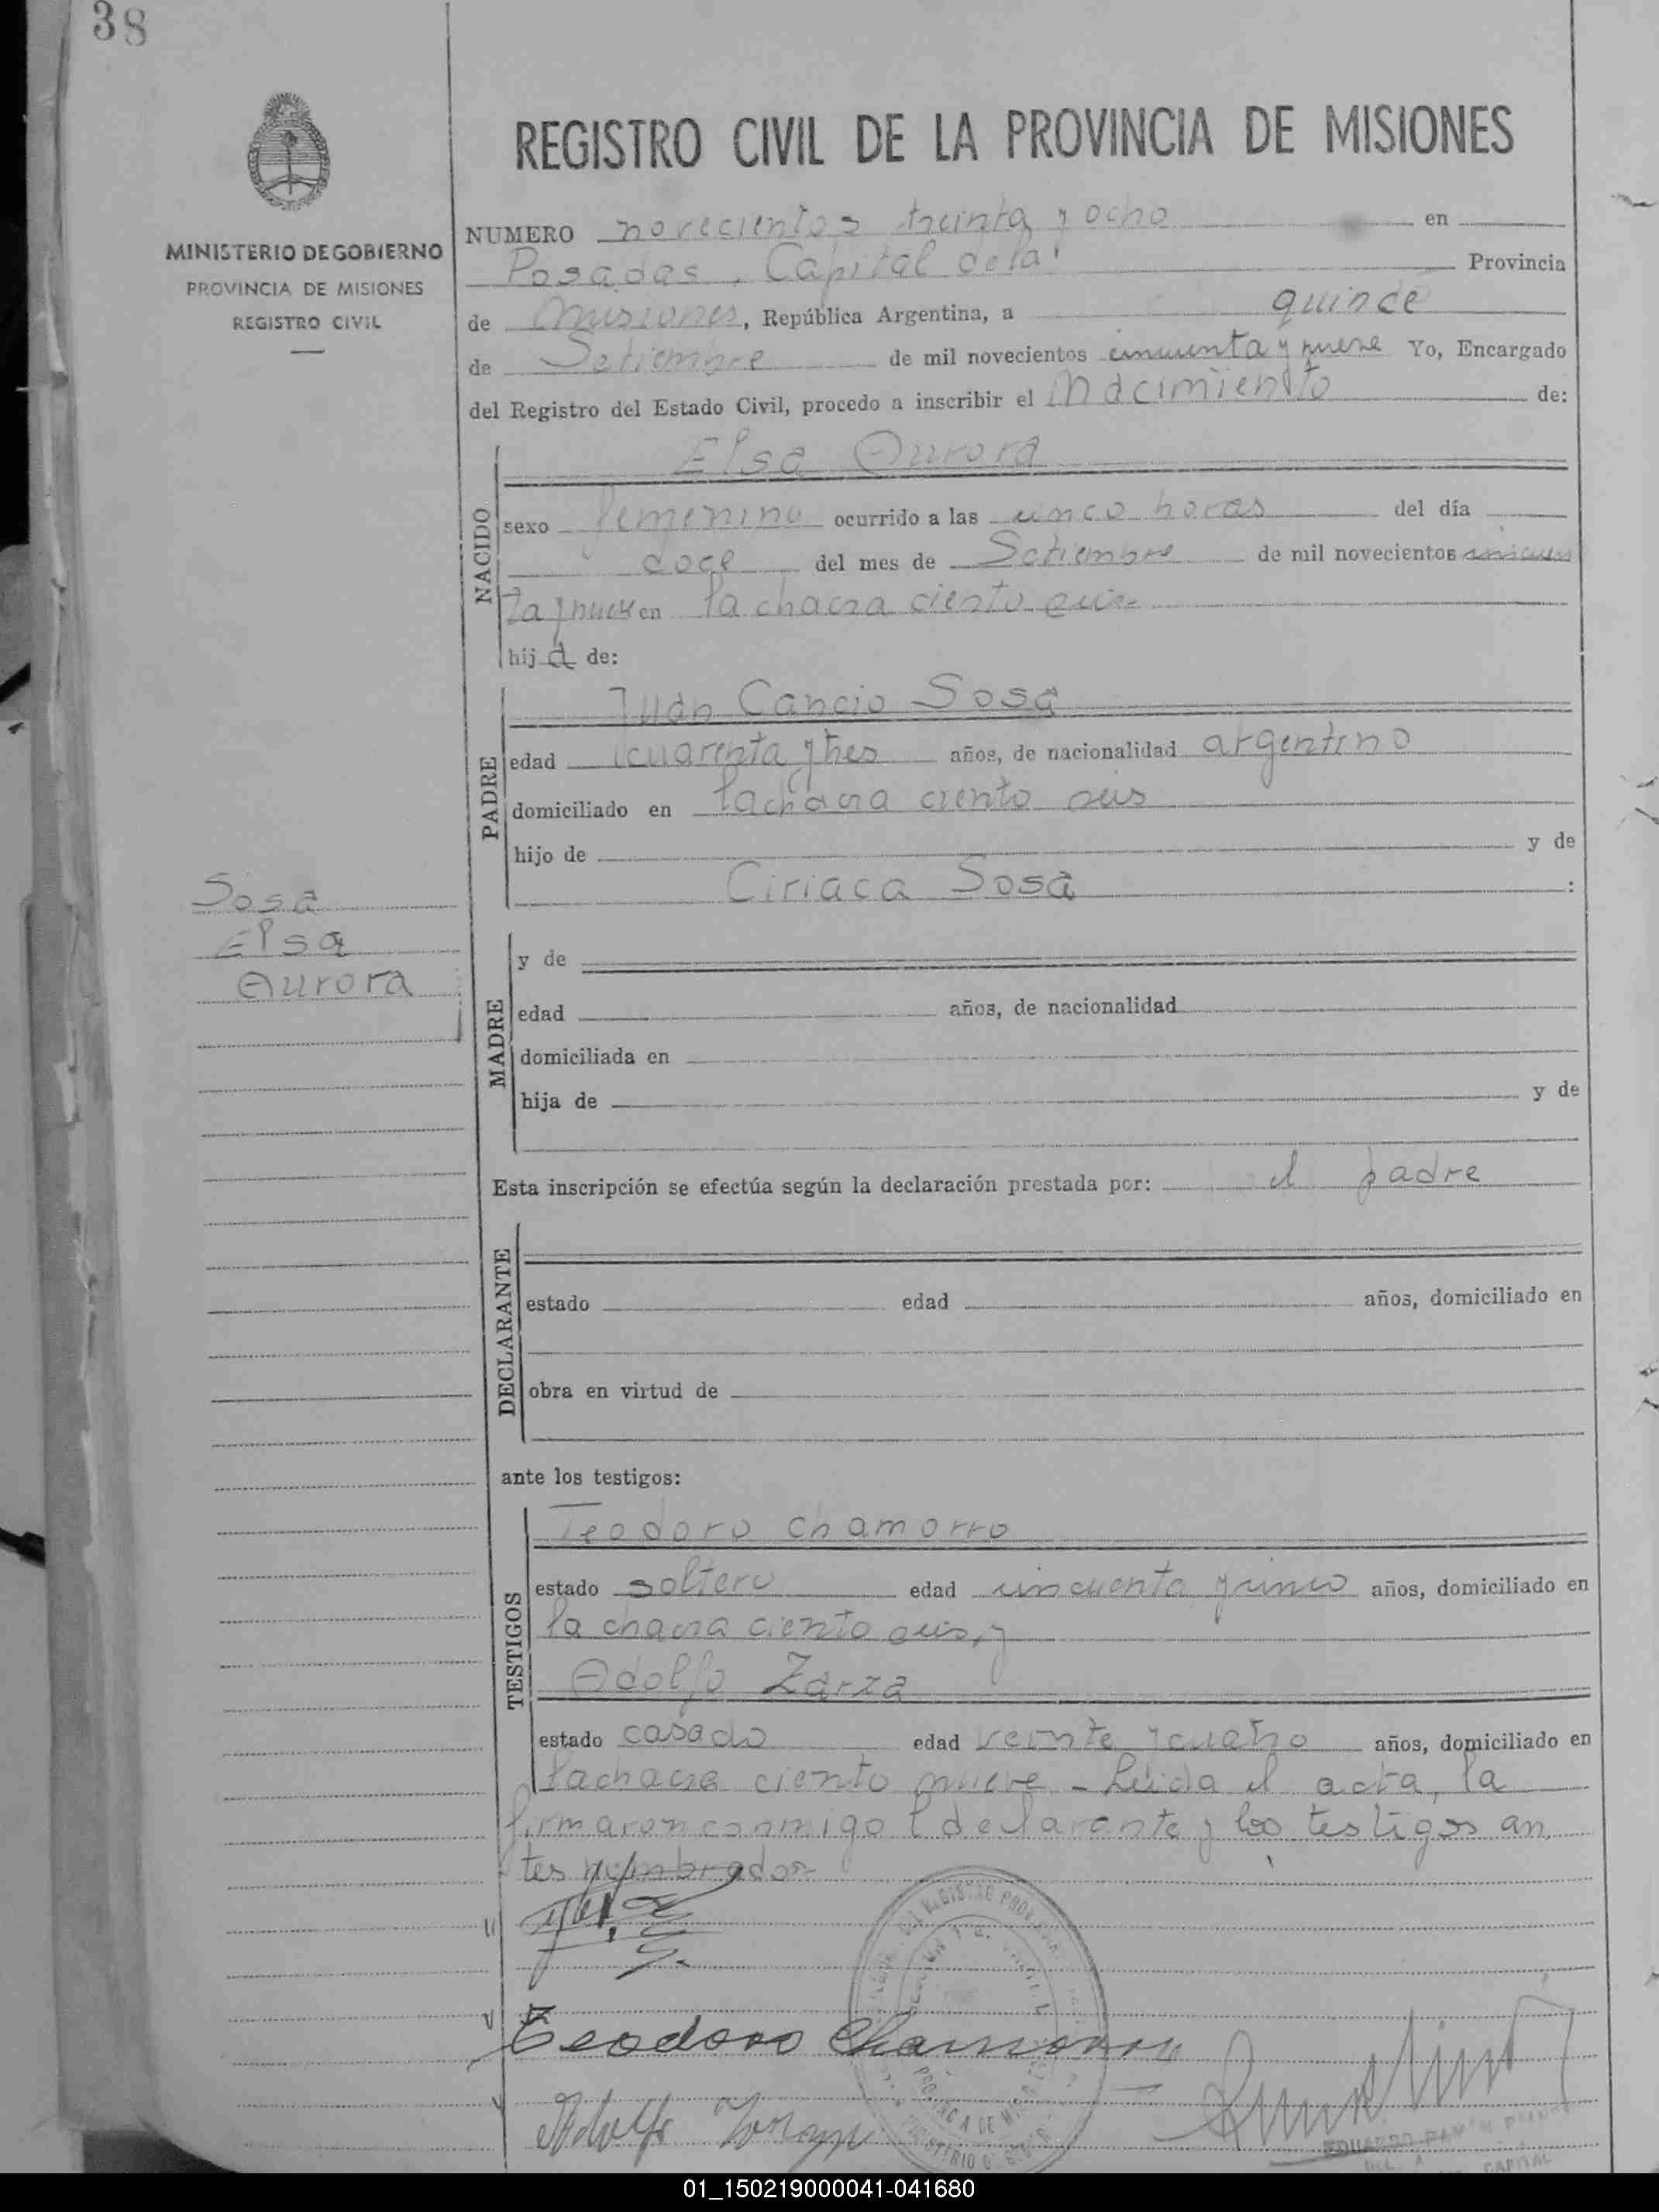 38
REGISTRO CIVIL DE LA PROVINCIA DE MISIONES
MINISTERIO DE GOBIERNO
PROVINCIA DE MISIONES
REGISTRO CIVIL
NUMERO novecientos treinta y ocho en
Posadas, Capital de la Provincia
de Misiones, República Argentina, a quince
de Setiembre de mil novecientos cincuenta y nueve Yo, Encargado
del Registro del Estado Civil, procedo a inscribir el Nacimiento de:
NACIDO
Elsa Aurora
sexo femenino ocurrido a las cinco horas del día
doce del mes de Setiembre de mil novecientos cincuen
ta y nueve en la chacra ciento seis
hija de:
PADRE
Juan Cancio Sosa
edad cuarenta y tres años, de nacionalidad argentino
domiciliado en la chacra ciento seis
hijo de y de
Ciriaca Sosa :
Sosa
Elsa
Aurora
MADRE
y de
edad años, de nacionalidad
domiciliada en
hija de y de
Esta inscripción se efectúa según la declaración prestada por: el padre
DECLARANTE
estado edad años, domiciliado en
obra en virtud de
ante los testigos:
TESTIGOS
Teodoro Chamorro
estado soltero edad cincuenta y cinco años, domiciliado en
la chacra ciento seis, y
Adolfo Zarza
estado casado edad veinte y cuatro años, domiciliado en
la chacra ciento nueve - Leída el acta, la
firmaron conmigo el declarante y los testigos an
tes nombrados-
Teodoro Chamorro
Adolfo
EDUARDO
CAPITAL
01_150219000041-041680